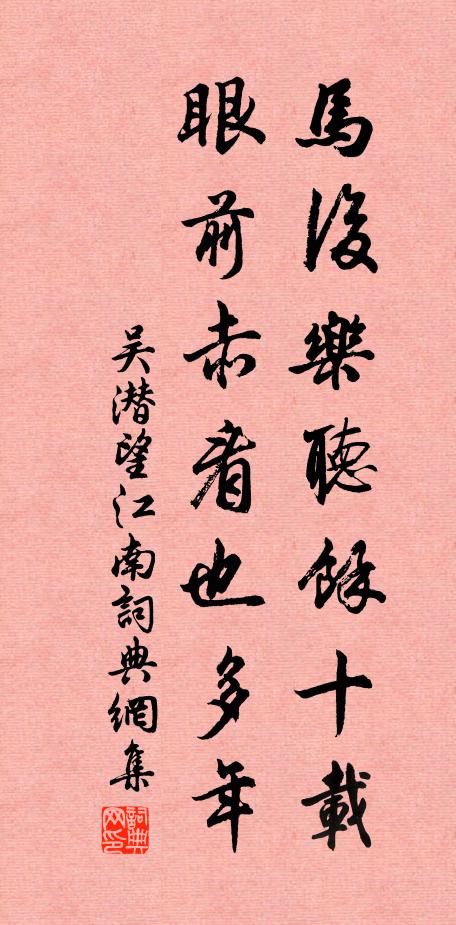 馬後樂聽餘十載
眼前赤看也多年
吴潜望江南詞典網集
詞典网印